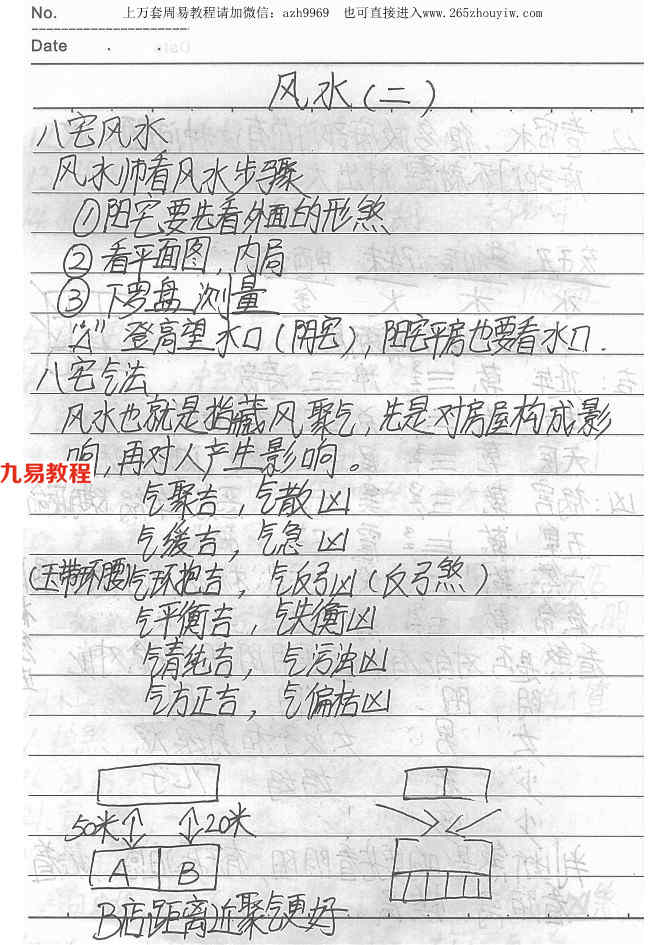 No.
上万套周易教程请加微信：azh9969 也可直接进入www.265zhouyiw.com
Date . .
风水(二)
八宅风水
风水师看风水步骤
①阳宅要先看外面的形煞
②看平面图,内局
③下罗盘 测量
登高望水口(阴宅),阳宅平房也要看水口.
八宅气法
风水也就是指藏风聚气,先是对房屋构成影
响,再对人产生影响。
九易教程
气聚吉,气散凶
气缓吉,气急凶
(玉带环腰)气环抱吉,气反弓凶(反弓煞)
气平衡吉,气失衡凶
气清纯吉,气污浊凶
气方正吉,气偏枯凶
50米 20米
A B
B店距离近聚气更好